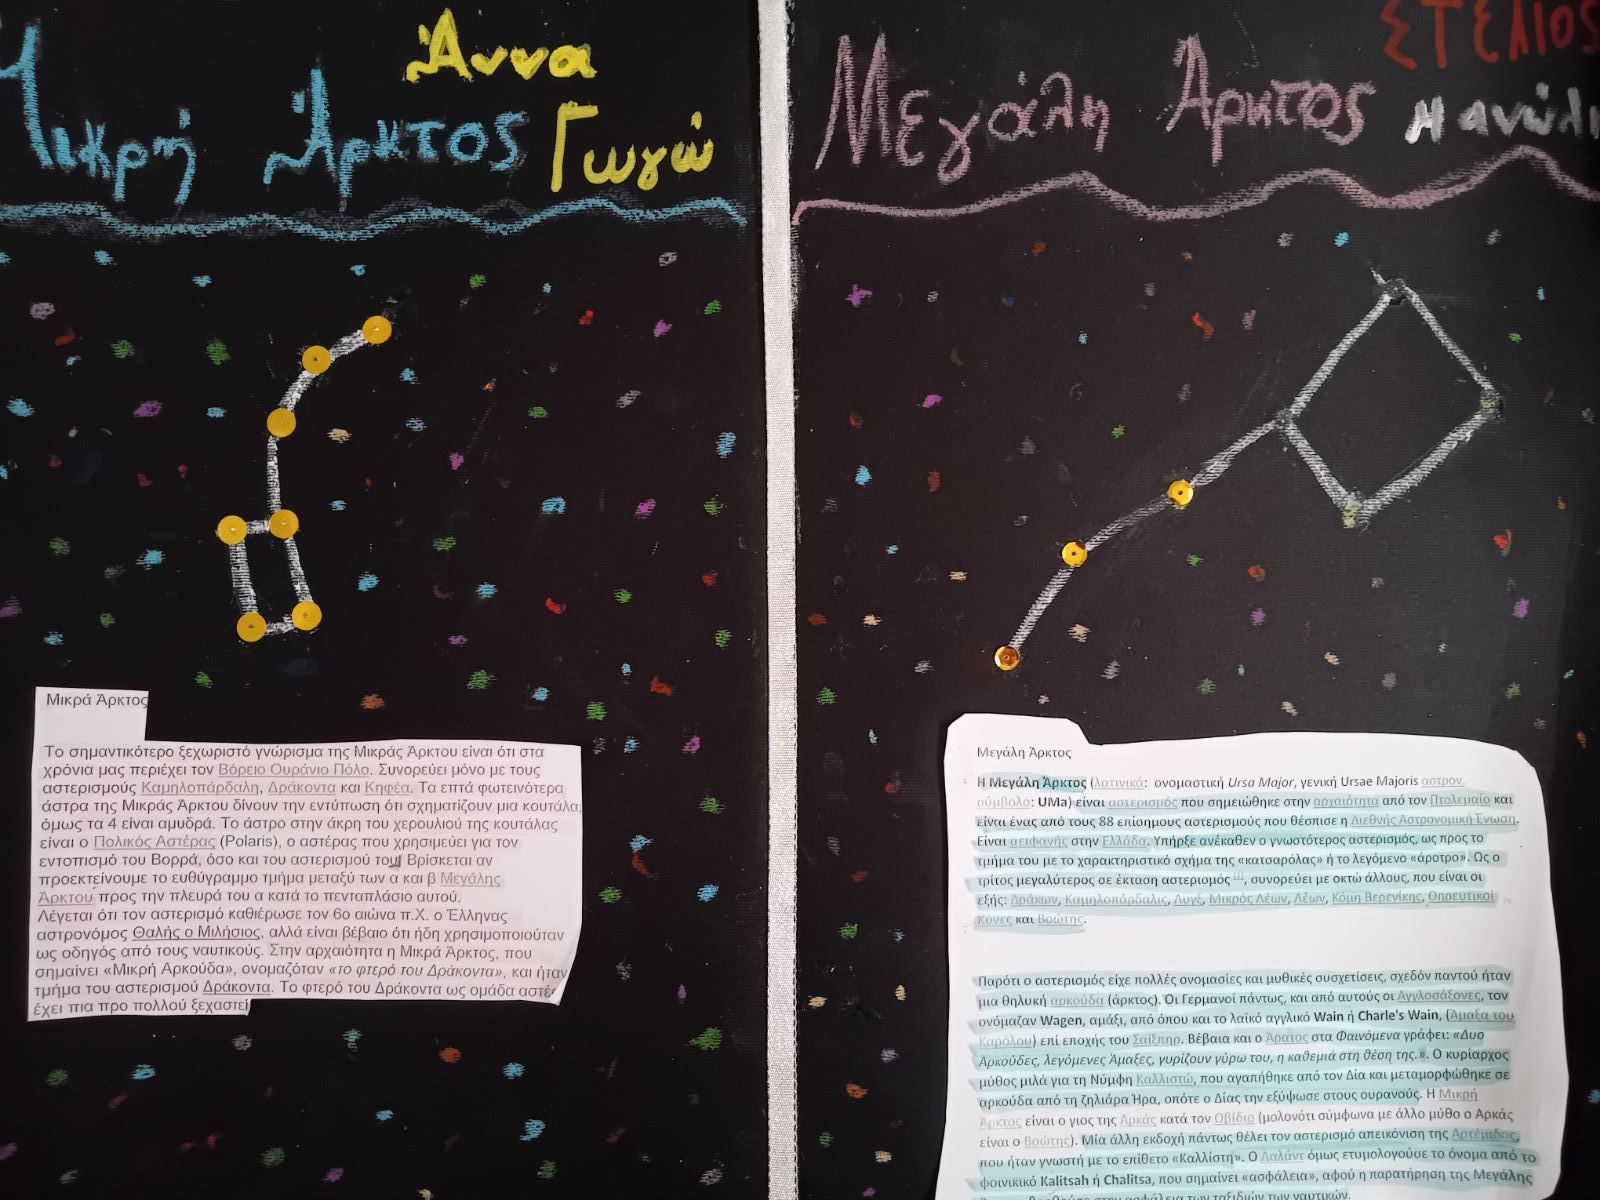 Άννα
Μικρή Άρκτος
Γωγώ
Μικρά Άρκτος
Το σημαντικότερο ξεχωριστό γνώρισμα της Μικράς Άρκτου είναι ότι στα
χρόνια μας περιέχει τον Βόρειο Ουράνιο Πόλο. Συνορεύει μόνο με τους
αστερισμούς Καμηλοπάρδαλη, Δράκοντα και Κηφέα. Τα επτά φωτεινότερα
άστρα της Μικράς Άρκτου δίνουν την εντύπωση ότι σχηματίζουν μια κουτάλα,
όμως τα 4 είναι αμυδρά. Το άστρο στην άκρη του χερουλιού της κουτάλας
είναι ο Πολικός Αστέρας (Polaris), ο αστέρας που χρησιμεύει για τον
εντοπισμό του Βορρά, όσο και του αστερισμού του Βρίσκεται αν
προεκτείνουμε το ευθύγραμμο τμήμα μεταξύ των α και β Μεγάλης
Άρκτου προς την πλευρά του α κατά το πενταπλάσιο αυτού.
Λέγεται ότι τον αστερισμό καθιέρωσε τον 6ο αιώνα π.Χ. ο Έλληνας
αστρονόμος Θαλής ο Μιλήσιος, αλλά είναι βέβαιο ότι ήδη χρησιμοποιούταν
ως οδηγός από τους ναυτικούς. Στην αρχαιότητα η Μικρά Άρκτος, που
σημαίνει «Μικρή Αρκούδα», ονομαζόταν «το φτερό του Δράκοντα», και ήταν
τμήμα του αστερισμού Δράκοντα. Το φτερό του Δράκοντα ως ομάδα αστέ
έχει πια προ πολλού ξεχαστεί
ΣΤΕΛΙΟΣ
Μεγάλη Άρκτος
Μανώλη
Μεγάλη Άρκτος
Η Μεγάλη Άρκτος (λατινικά: ονομαστική Ursa Major, γενική Ursae Majoris αστρον.
σύμβολο: UMa) είναι αστερισμός που σημειώθηκε στην αρχαιότητα από τον Πτολεμαίο και
είναι ένας από τους 88 επίσημους αστερισμούς που θέσπισε η Διεθνής Αστρονομική Ένωση.
Είναι αειφανής στην Ελλάδα. Υπήρξε ανέκαθεν ο γνωστότερος αστερισμός, ως προς το
τμήμα του με το χαρακτηριστικό σχήμα της «κατσαρόλας» ή το λεγόμενο «άροτρο». Ως ο
τρίτος μεγαλύτερος σε έκταση αστερισμός [1], συνορεύει με οκτώ άλλους, που είναι οι
εξής: Δράκων, Καμηλοπάρδαλις, Λυγξ, Μικρός Λέων, Λέων, Κόμη Βερενίκης, Θηρευτικοί
Κύνες και Βοώτης.
Παρότι ο αστερισμός είχε πολλές ονομασίες και μυθικές συσχετίσεις, σχεδόν παντού ήταν
μια θηλυκή αρκούδα (άρκτος). Οι Γερμανοί πάντως, και από αυτούς οι Αγγλοσάξονες, τον
ονόμαζαν Wagen, αμάξι, από όπου και το λαϊκό αγγλικό Wain ή Charle's Wain, (Άμαξα του
Καρόλου) επί εποχής του Σαίξπηρ. Βέβαια και ο Άρατος στα Φαινόμενα γράφει: «Δυο
Αρκούδες, λεγόμενες Άμαξες, γυρίζουν γύρω του, η καθεμιά στη θέση της.». Ο κυρίαρχος
μύθος μιλά για τη Νύμφη Καλλιστώ, που αγαπήθηκε από τον Δία και μεταμορφώθηκε σε
αρκούδα από τη ζηλιάρα Ήρα, οπότε ο Δίας την εξύψωσε στους ουρανούς. Η Μικρή
Άρκτος είναι ο γιος της Αρκάς κατά τον Οβίδιο (μολονότι σύμφωνα με άλλο μύθο ο Αρκάς
είναι ο Βοώτης). Μία άλλη εκδοχή πάντως θέλει τον αστερισμό απεικόνιση της Αρτέμιδος,
που ήταν γνωστή με το επίθετο «Καλλίστη». Ο Λαλάντ όμως ετυμολογούσε το όνομα από το
φοινικικό Kalitsah ή Chalitsa, που σημαίνει «ασφάλεια», αφού η παρατήρηση της Μεγάλης
στην ασφάλεια των ταξιδιών των ναυτικών.